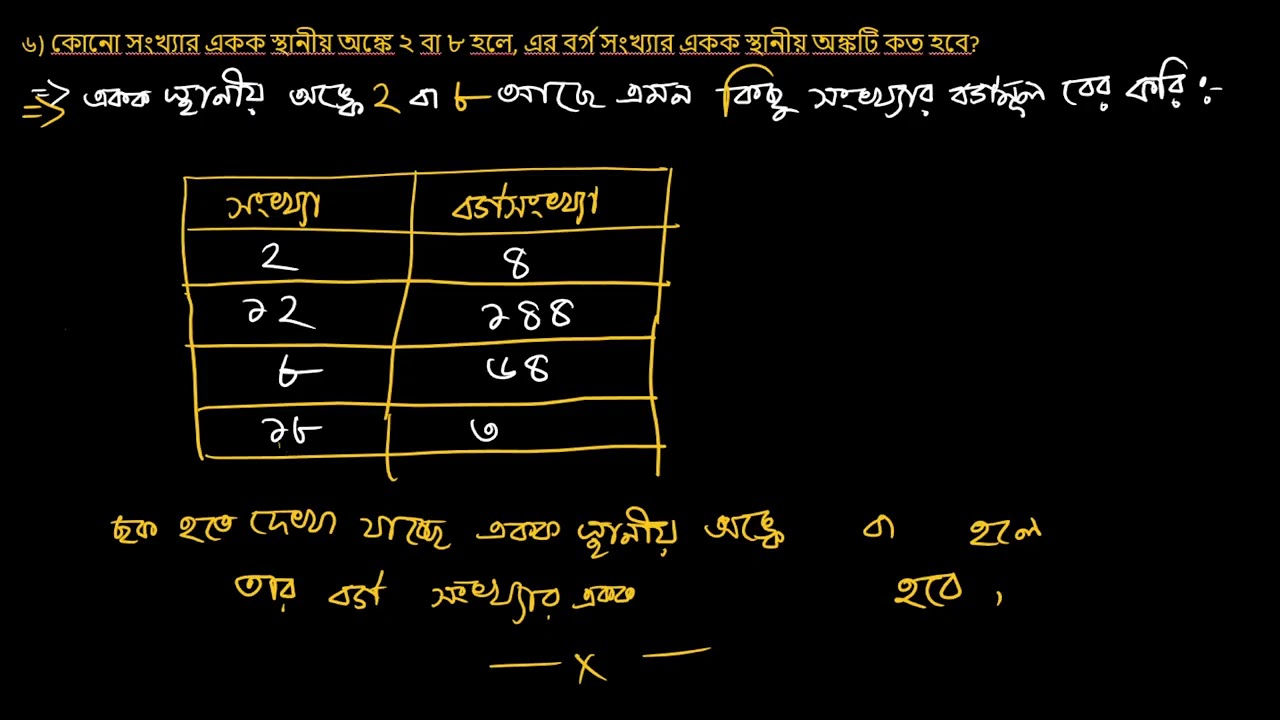 ৬) কোনো সংখ্যার একক স্থানীয় অঙ্কে ২ বা ৮ হলে, এর বর্গ সংখ্যার একক স্থানীয় অঙ্কটি কত হবে?
=> একক স্থানীয় অঙ্কে ২ বা ৮ আছে এমন কিছু সংখ্যার বর্গমূল বের করি :-
সংখ্যা বর্গসংখ্যা
২ ৪
১২ ১৪৪
৮ ৬৪
১৮ ৩
ছক হতে দেখা যাচ্ছে একক স্থানীয় অঙ্কে বা হলে
তার বর্গ সংখ্যার একক হবে ,
— x —